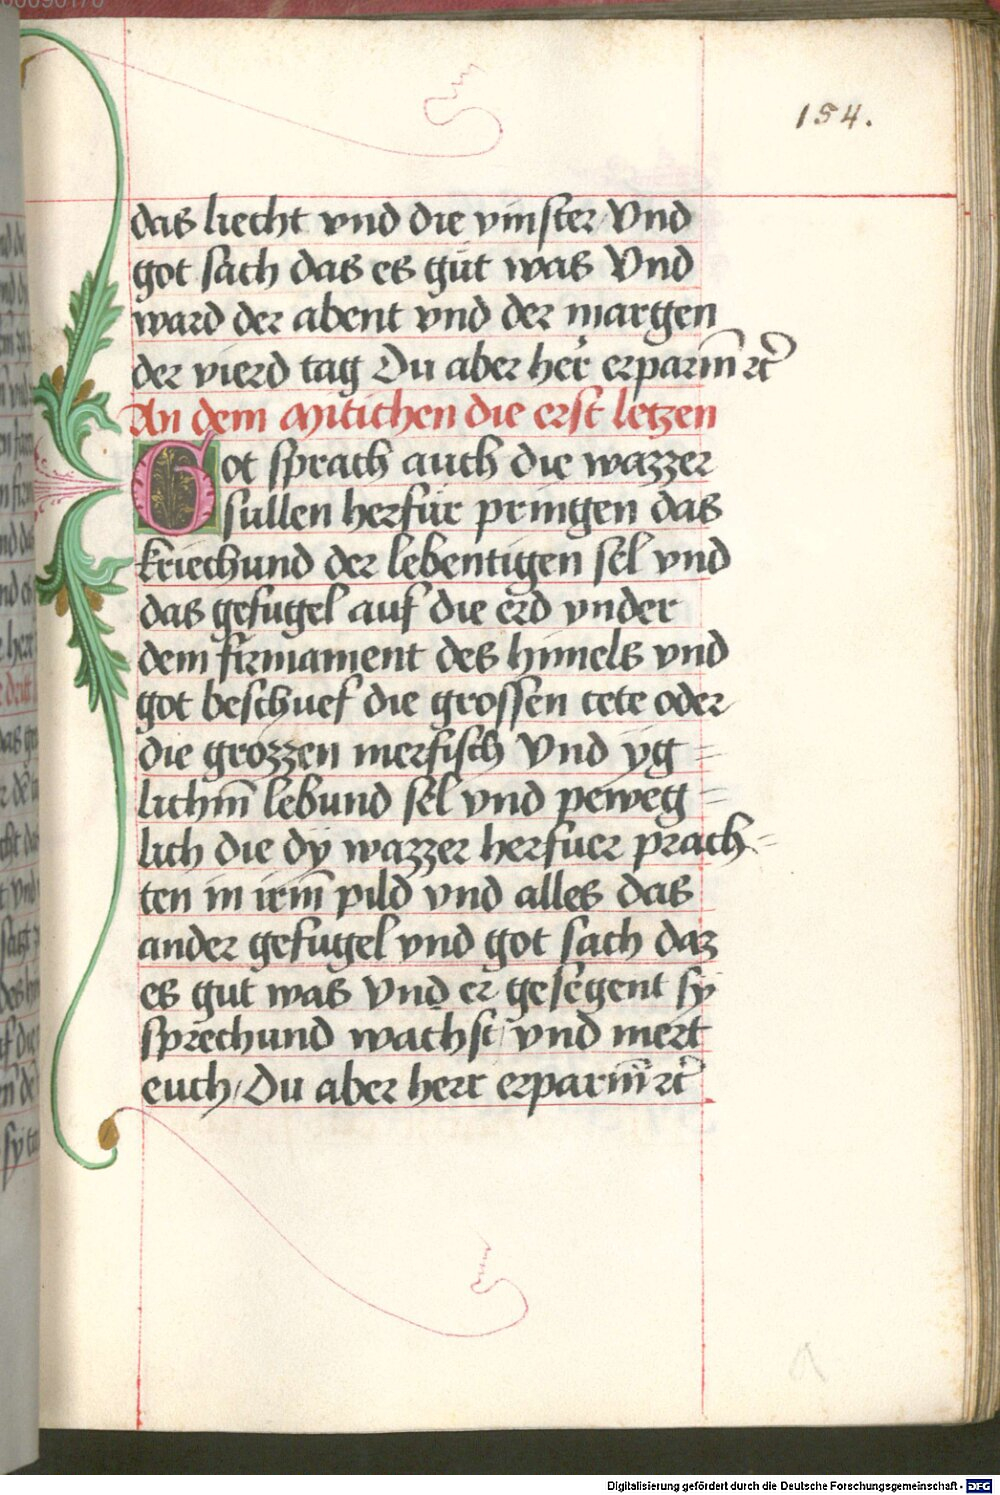 154.
das liecht vnd die vinster Vnd
got sach das es güt was Vnd
ward der abent vnd der margen
der vierd tag Du aber her erparm̄ rc̄
An dem Mitichen die erst letzen
Got sprach auch die wazzer
sullen herfür pringen das
kriechund der lebentigen sel vnd
das gefugel auf die erd vnder
dem firmament des himels vnd
got beschuef die grossen cete oder
die grozzen merfisch Vnd yg=
lichm̄ lebund sel vnd peweg=
lich die dÿ wazzer herfuer prach=
ten in irm̄ pild vnd alles das
ander gefugel vnd got sach daz
es gut was Vnd er gesegent sÿ
sprechund wachst / vnd mert
euch / Du aber herr erparm̄ rc̄
a
Digitalisierung gefördert durch die Deutsche Forschungsgemeinschaft - DFG